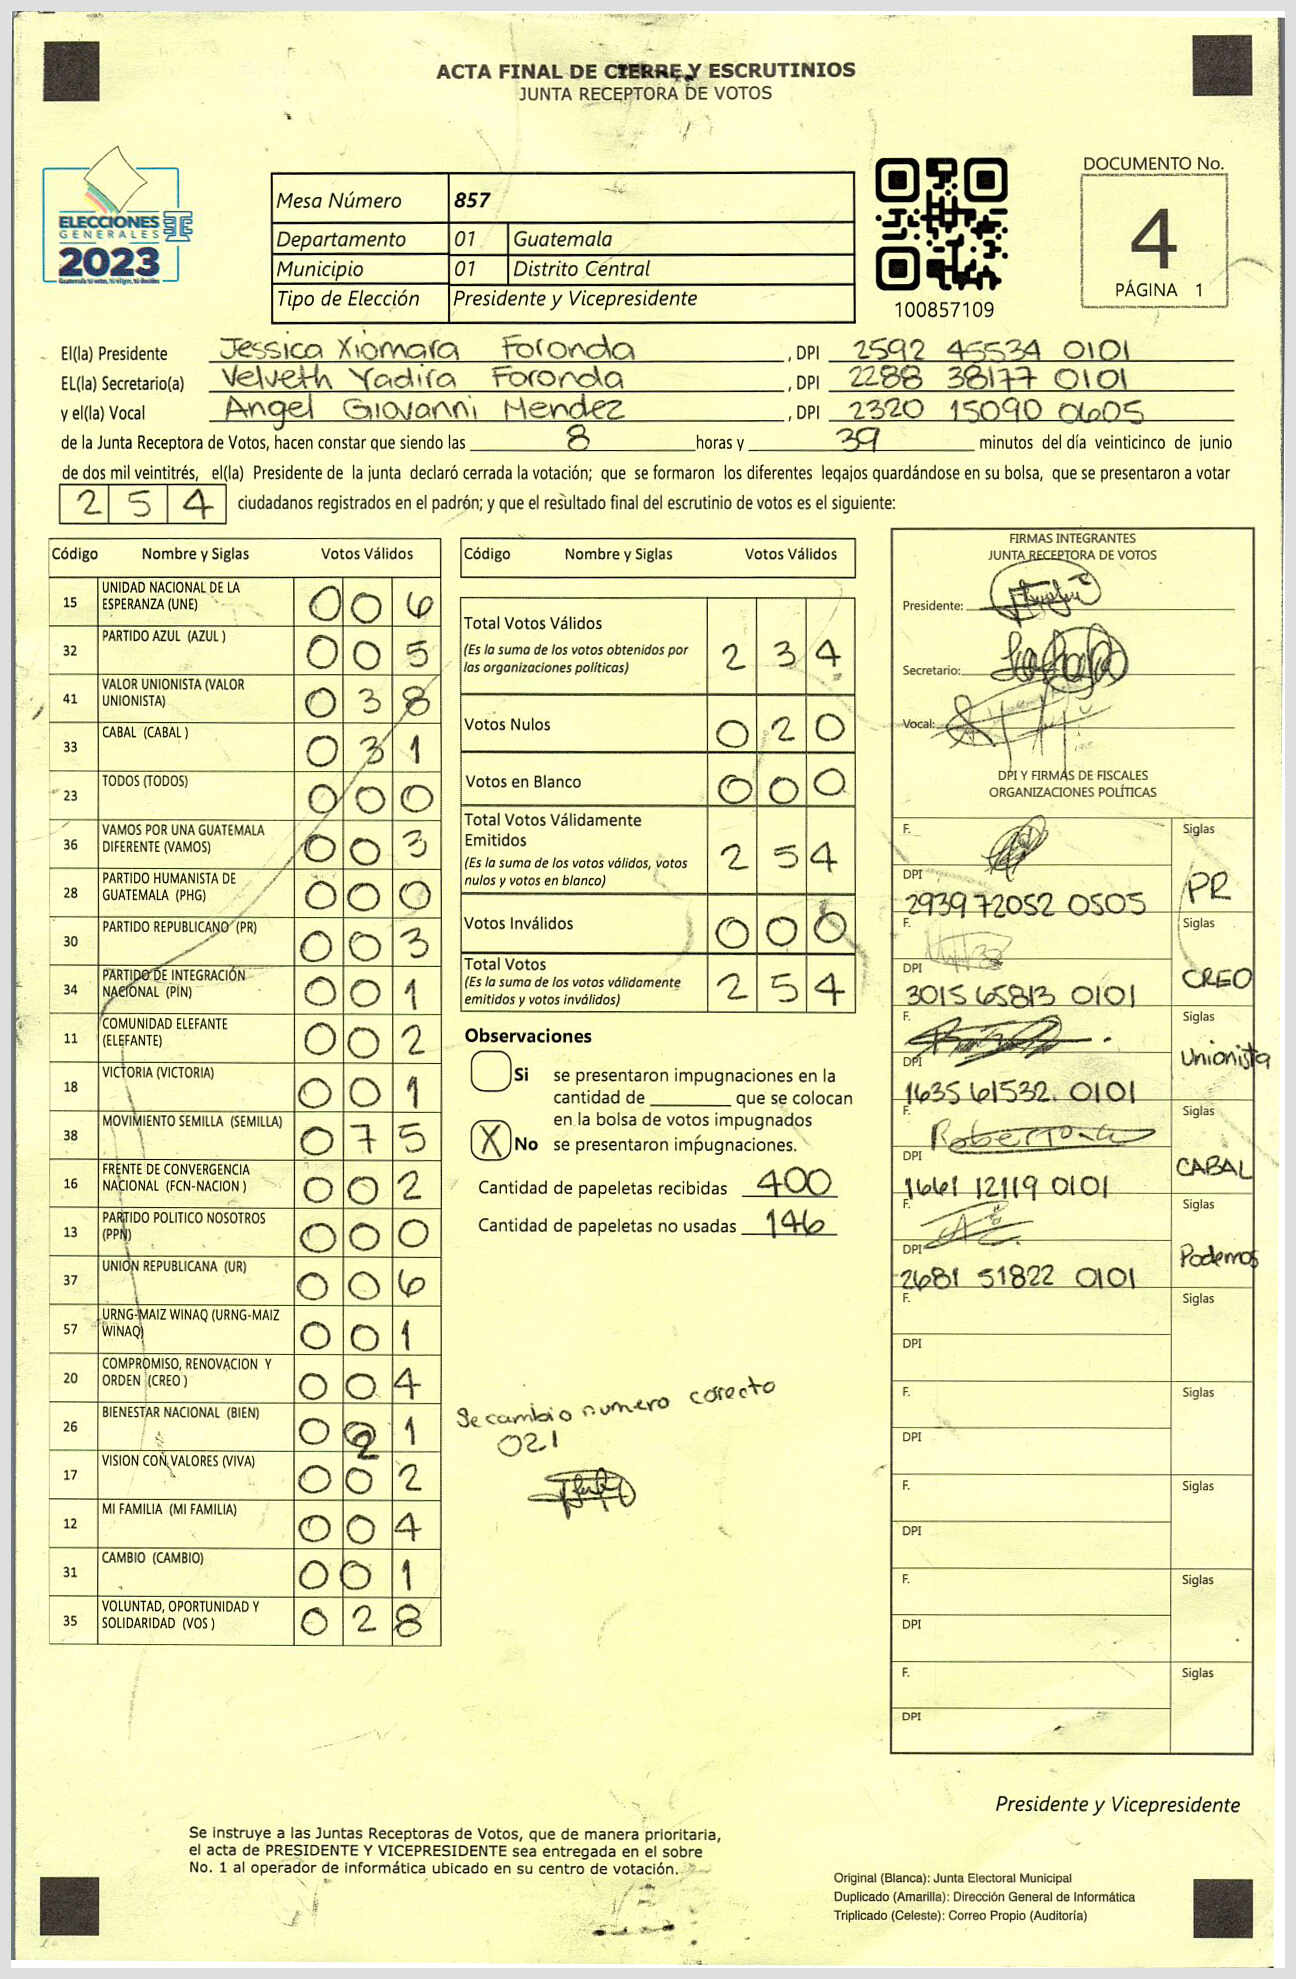 ACTA FINAL DE CIERRE Y ESCRUTINIOS
JUNTA RECEPTORA DE VOTOS
ELECCIONES
GENERALES
2023
Mesa Número 857
Departamento 01 Guatemala
Municipio 01 Distrito Central
Tipo de Elección Presidente y Vicepresidente
100857109
DOCUMENTO No.
4
PÁGINA 1
El(la) Presidente Jessica Xiomara Foronda , DPI 2592 45534 0101
EL(la) Secretario(a) Velveth Yadira Foronda , DPI 2288 38177 0101
y el(la) Vocal Angel Giovanni Mendez , DPI 2320 15090 0605
de la Junta Receptora de Votos, hacen constar que siendo las 8 horas y 39 minutos del día veinticinco de junio
de dos mil veintitrés, el(la) Presidente de la junta declaró cerrada la votación; que se formaron los diferentes legajos guardándose en su bolsa, que se presentaron a votar
254 ciudadanos registrados en el padrón; y que el resultado final del escrutinio de votos es el siguiente:
Código Nombre y Siglas Votos Válidos
15 UNIDAD NACIONAL DE LA
ESPERANZA (UNE) 006
32 PARTIDO AZUL (AZUL ) 005
41 VALOR UNIONISTA (VALOR
UNIONISTA) 038
33 CABAL (CABAL ) 031
23 TODOS (TODOS) 000
36 VAMOS POR UNA GUATEMALA
DIFERENTE (VAMOS) 003
28 PARTIDO HUMANISTA DE
GUATEMALA (PHG) 000
30 PARTIDO REPUBLICANO (PR) 003
34 PARTIDO DE INTEGRACIÓN
NACIONAL (PIN) 001
11 COMUNIDAD ELEFANTE
(ELEFANTE) 002
18 VICTORIA (VICTORIA) 001
38 MOVIMIENTO SEMILLA (SEMILLA) 075
16 FRENTE DE CONVERGENCIA
NACIONAL (FCN-NACION ) 002
13 PARTIDO POLITICO NOSOTROS
(PPN) 000
37 UNION REPUBLICANA (UR) 006
57 URNG-MAIZ WINAQ (URNG-MAIZ
WINAQ) 001
20 COMPROMISO, RENOVACION Y
ORDEN (CREO ) 004
26 BIENESTAR NACIONAL (BIEN) 021
17 VISION CON VALORES (VIVA) 002
12 MI FAMILIA (MI FAMILIA) 004
31 CAMBIO (CAMBIO) 001
35 VOLUNTAD, OPORTUNIDAD Y
SOLIDARIDAD (VOS ) 028
Código Nombre y Siglas Votos Válidos
Total Votos Válidos
(Es la suma de los votos obtenidos por
las organizaciones políticas) 234
Votos Nulos 020
Votos en Blanco 000
Total Votos Válidamente
Emitidos
(Es la suma de los votos válidos, votos
nulos y votos en blanco) 254
Votos Inválidos 000
Total Votos
(Es la suma de los votos válidamente
emitidos y votos inválidos) 254
Observaciones
Si se presentaron impugnaciones en la
cantidad de que se colocan
en la bolsa de votos impugnados
X No se presentaron impugnaciones.
Cantidad de papeletas recibidas 400
Cantidad de papeletas no usadas 146
Se cambio numero corecto
021
FIRMAS INTEGRANTES
JUNTA RECEPTORA DE VOTOS
Presidente:
Secretario:
Vocal:
DPI Y FIRMAS DE FISCALES
ORGANIZACIONES POLÍTICAS
F. Siglas
DPI 2939 72052 0505 PR
F. Siglas
DPI 3015 65813 0101 CREO
F. Siglas
DPI 1635 61532. 0101 Unionista
F. Siglas
DPI 1661 12119 0101 CABAL
F. Siglas
DPI 2681 51822 0101 Podemos
F. Siglas
DPI
F. Siglas
DPI
F. Siglas
DPI
F. Siglas
DPI
F. Siglas
DPI
Presidente y Vicepresidente
Se instruye a las Juntas Receptoras de Votos, que de manera prioritaria,
el acta de PRESIDENTE Y VICEPRESIDENTE sea entregada en el sobre
No. 1 al operador de informática ubicado en su centro de votación.
Original (Blanca): Junta Electoral Municipal
Duplicado (Amarilla): Dirección General de Informática
Triplicado (Celeste): Correo Propio (Auditoría)